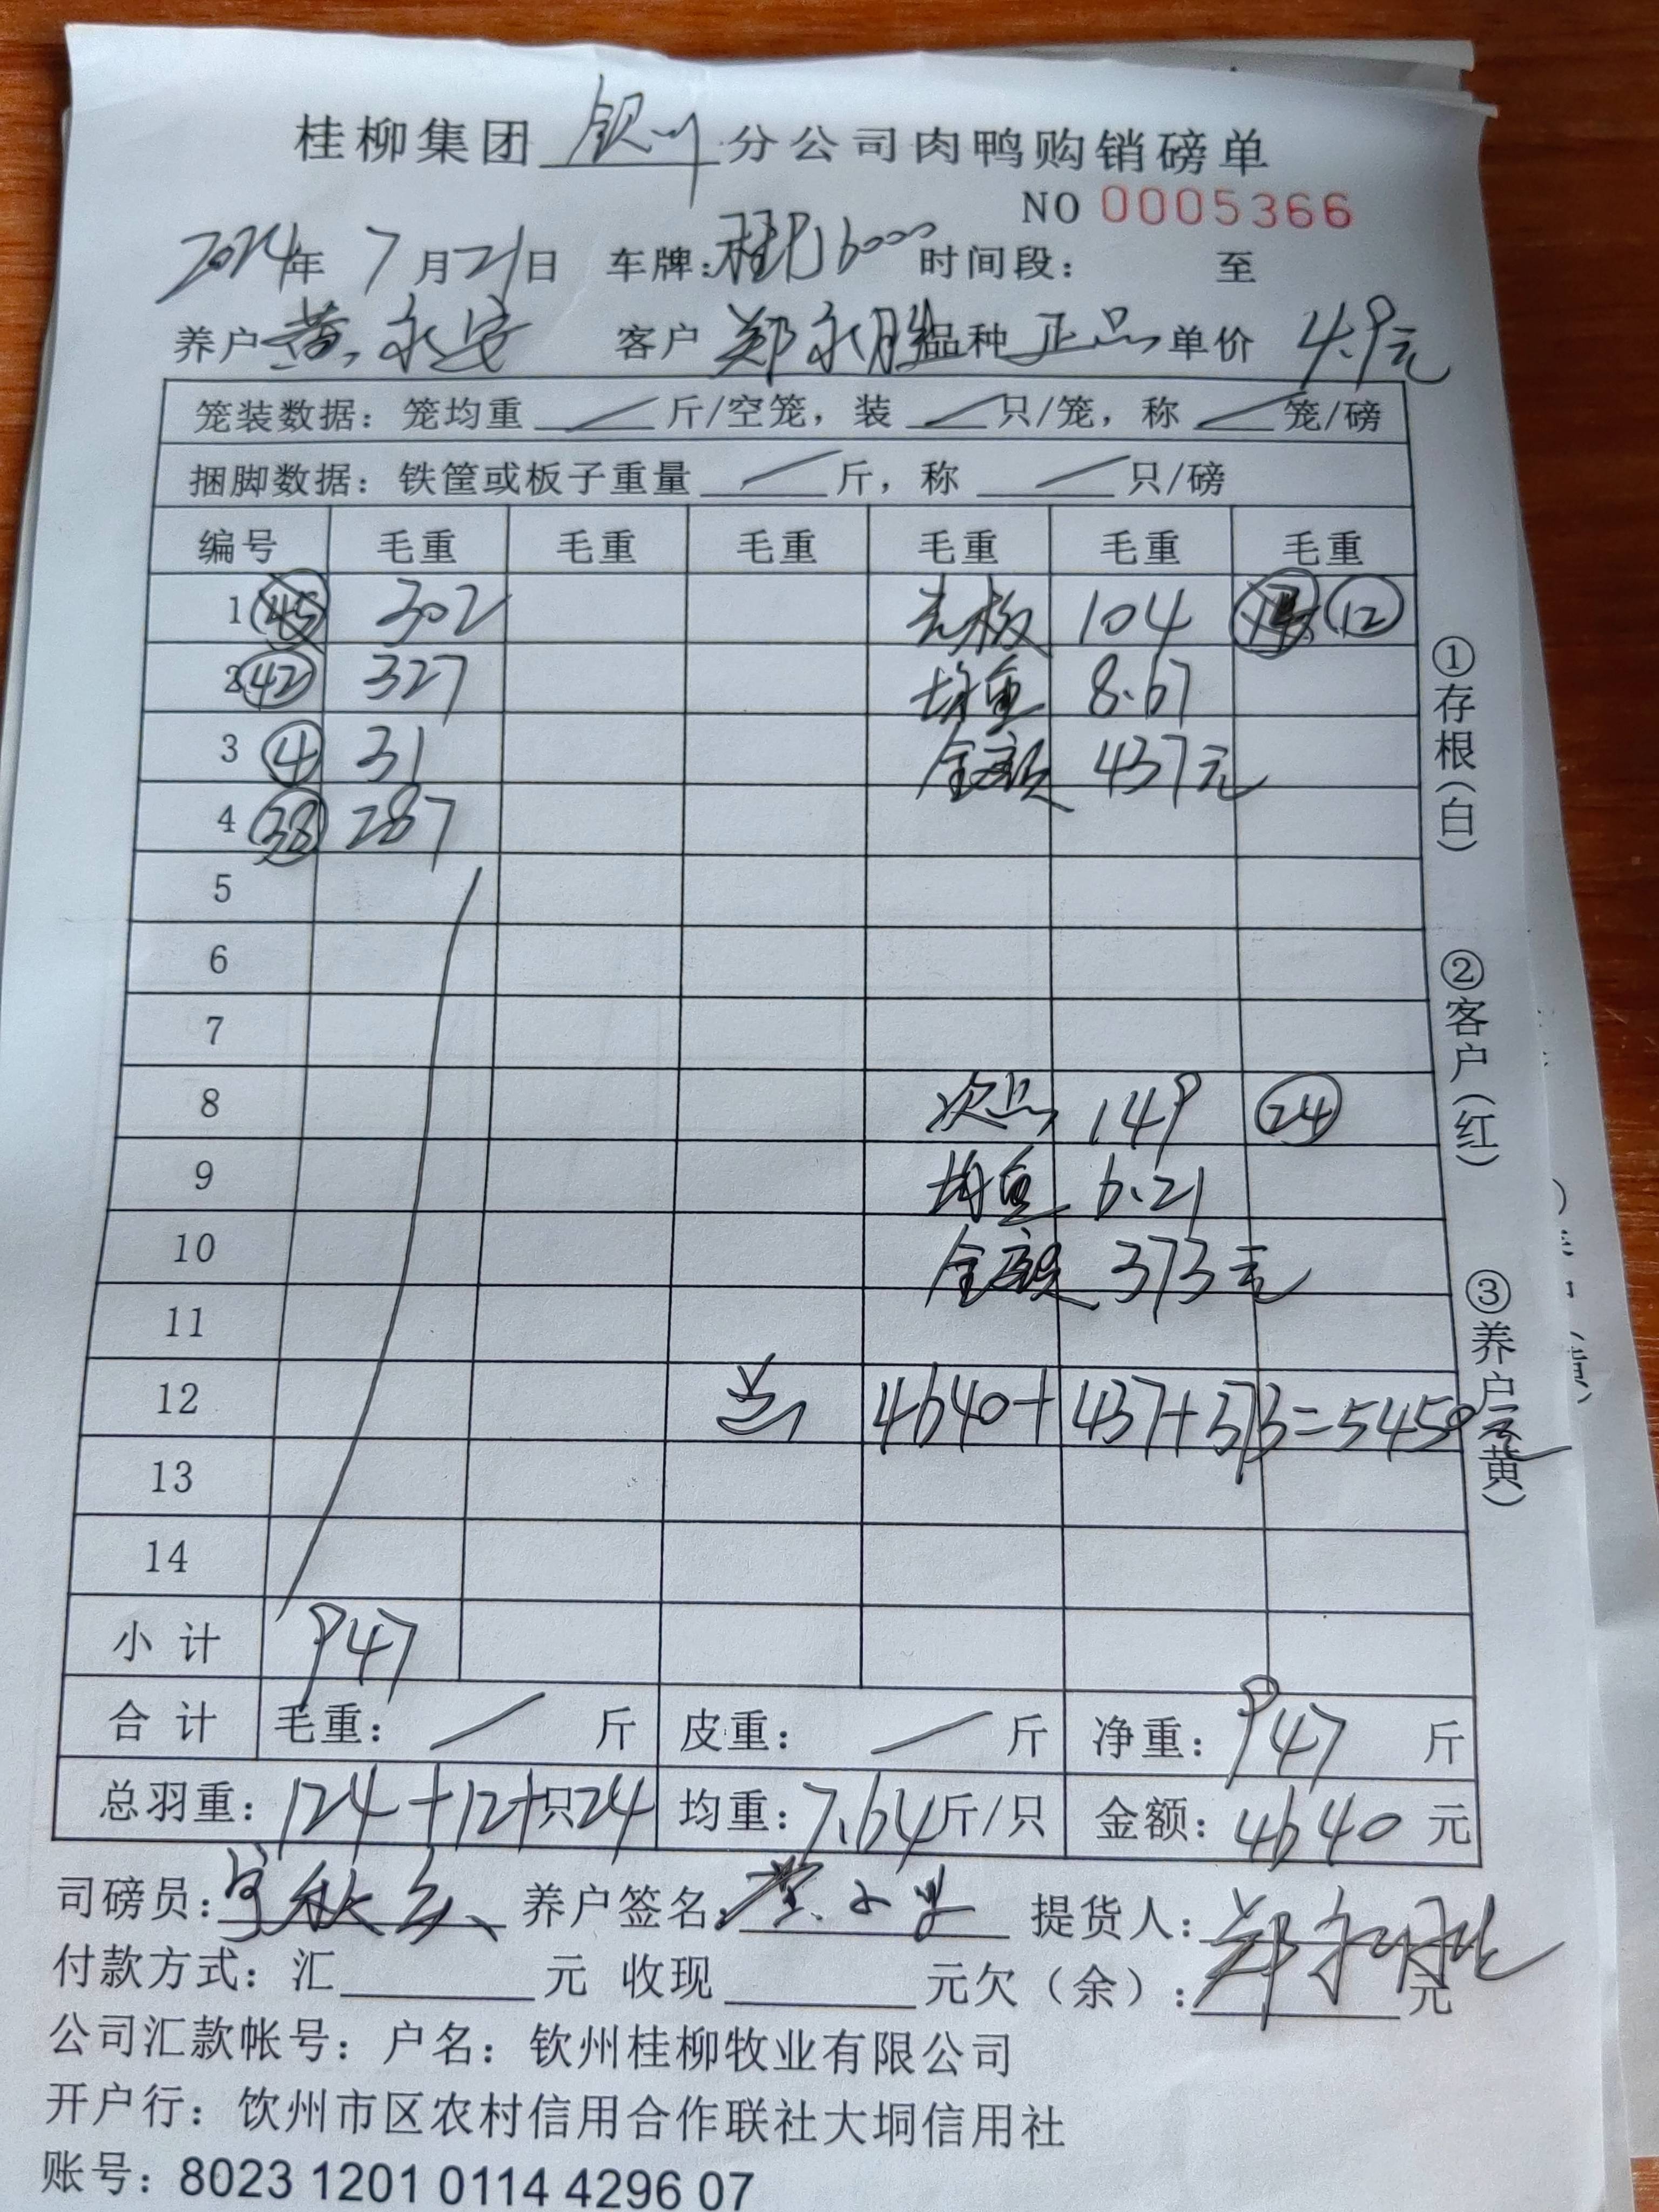 桂柳集团 钦州 分公司肉鸭购销磅单
NO 0005366
2024年 7月21日 车牌: 6000 时间段: 至
养户 黄永安 客户 郑永胜 品种 正品 单价 4.9元
笼装数据: 笼均重 / 斤/空笼, 装 / 只/笼, 称 / 笼/磅
捆脚数据: 铁筐或板子重量 / 斤, 称 / 只/磅
编号 毛重 毛重 毛重 毛重 毛重 毛重
1 45 302 104 12
2 42 327 均重 8.67
3 4 31 金额 437元
4 38 287
5
6
7
8 次品 149 24
9 均重 6.21
10 金额 373元
11
12 总 4640+437+373=5450元
13
14
小计 947
合计 毛重: / 斤 皮重: / 斤 净重: 947 斤
总羽重: 124+12+24只 均重: 7.64斤/只 金额: 4640元
司磅员: 养户签名: 提货人: 郑永胜
付款方式: 汇 元 收现 元欠(余): 元
公司汇款帐号: 户名: 钦州桂柳牧业有限公司
开户行: 钦州市区农村信用合作联社大垌信用社
账号: 8023 1201 0114 4296 07
①存根(白)
②客户(红)
③养户(黄)